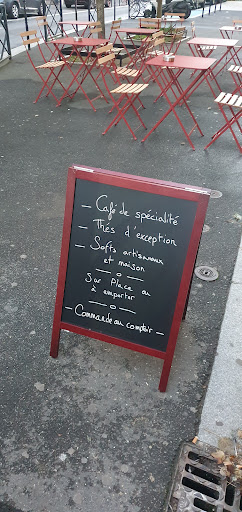 - Café de spécialité -
- Thés d'exception -
- Softs artisanaux
et maison
—o—
Sur Place ou
à emporter
—o—
- Commande au comptoir -